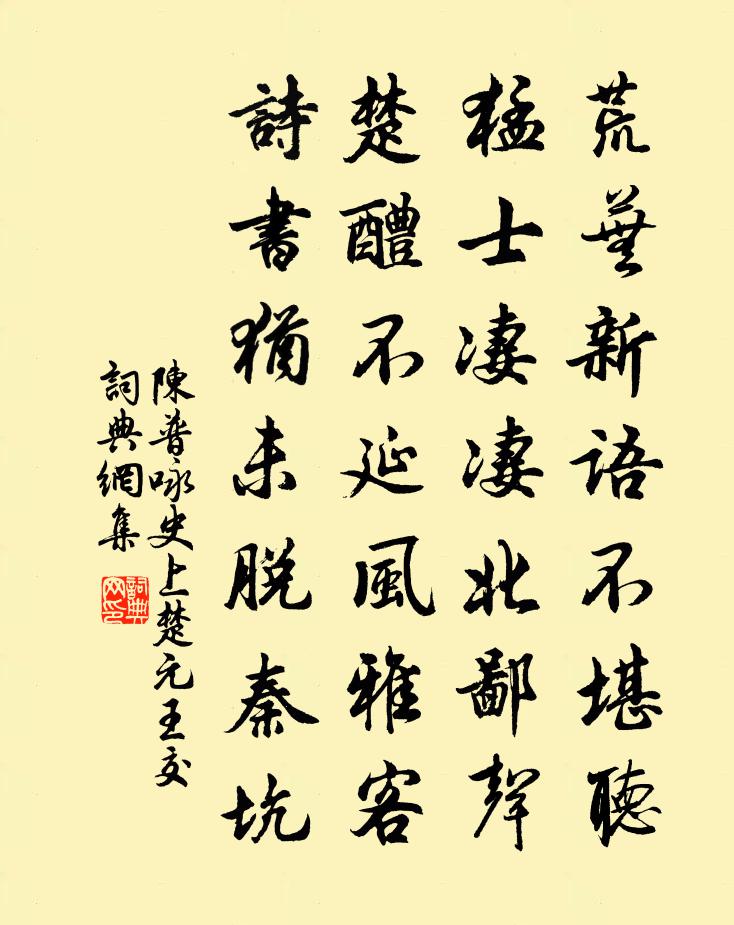 荒蕪新語不堪聽
猛士凄凄北鄙聲
楚醴不延風雅客
詩書猶未脫秦坑
陳普咏史上楚元王交
詞典網集
詞典網印